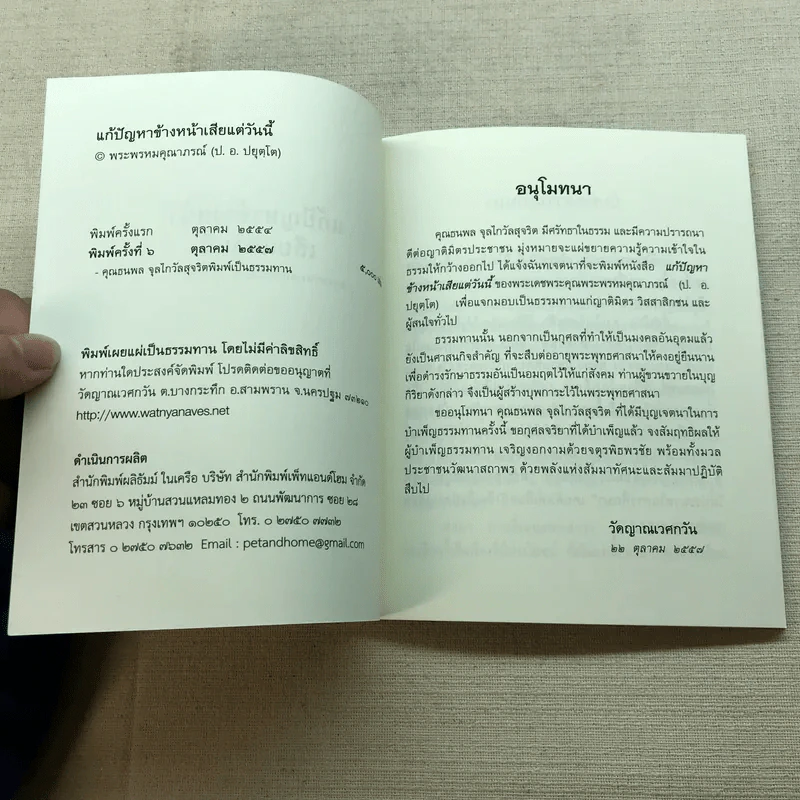 แก้ปัญหาข้างหน้าเสียแต่วันนี้
© พระพรหมคุณาภรณ์ (ป. อ. ปยุตฺโต)
พิมพ์ครั้งแรก ตุลาคม ๒๕๕๔
พิมพ์ครั้งที่ ๖ ตุลาคม ๒๕๕๗
- คุณธนพล จุลไกวัลสุจริตพิมพ์เป็นธรรมทาน ๕,๐๐๐
พิมพ์เผยแผ่เป็นธรรมทาน โดยไม่มีค่าลิขสิทธิ์
หากท่านใดประสงค์จัดพิมพ์ โปรดติดต่อขออนุญาตที่
วัดญาณเวศกวัน ต.บางกระทึก อ.สามพราน จ.นครปฐม ๗๓๒๑๐
http://www.watnyanaves.net
ดำเนินการผลิต
สำนักพิมพ์ผลิธัมม์ ในเครือ บริษัท สำนักพิมพ์เพ็ทแอนด์โฮม จำกัด
๒๓ ซอย ๖ หมู่บ้านสวนแหลมทอง ๒ ถนนพัฒนาการ ซอย ๒๘
เขตสวนหลวง กรุงเทพฯ ๑๐๒๕๐ โทร. ๐ ๒๗๕๐ ๗๗๓๒
โทรสาร ๐ ๒๗๕๐ ๗๖๓๒ Email : petandhome@gmail.com
อนุโมทนา
คุณธนพล จุลไกวัลสุจริต มีศรัทธาในธรรม และมีความปรารถนา
ดีต่อญาติมิตรประชาชน มุ่งหมายจะแผ่ขยายความรู้ความเข้าใจใน
ธรรมให้กว้างออกไป ได้แจ้งฉันทเจตนาที่จะพิมพ์หนังสือ แก้ปัญหา
ข้างหน้าเสียแต่วันนี้ ของพระเดชพระคุณพระพรหมคุณาภรณ์ (ป. อ.
ปยุตฺโต) เพื่อแจกมอบเป็นธรรมทานแก่ญาติมิตร วิสสาสิกชน และ
ผู้สนใจทั่วไป
ธรรมทานนั้น นอกจากเป็นกุศลที่ทำให้เป็นมงคลอันอุดมแล้ว
ยังเป็นศาสนกิจสำคัญ ที่จะสืบต่ออายุพระพุทธศาสนาให้คงอยู่ยืนนาน
เพื่อดำรงรักษาธรรมอันเป็นอมฤตไว้ให้แก่สังคม ท่านผู้ขวนขวายในบุญ
กิริยาดังกล่าว จึงเป็นผู้สร้างบุพการะไว้ในพระพุทธศาสนา
ขออนุโมทนา คุณธนพล จุลไกวัลสุจริต ที่ได้มีบุญเจตนาในการ
บำเพ็ญธรรมทานครั้งนี้ ขอกุศลจริยาที่ได้บำเพ็ญแล้ว จงสัมฤทธิผลให้
ผู้บำเพ็ญธรรมทาน เจริญงอกงามด้วยจตุรพิธพรชัย พร้อมทั้งมวล
ประชาชนวัฒนาสถาพร ด้วยพลังแห่งสัมมาทัศนะและสัมมาปฏิบัติ
สืบไป
วัดญาณเวศกวัน
๒๒ ตุลาคม ๒๕๕๗